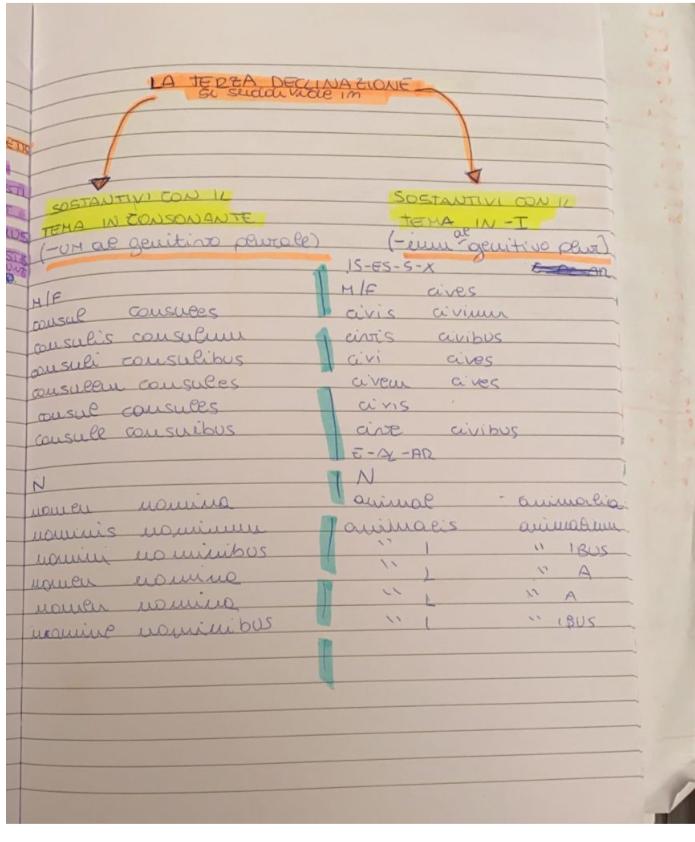 LA TERZA DECLINAZIONE
si suddivide in
SOSTANTIVI CON IL
TEMA IN CONSONANTE
(-UM al genitivo plurale)
M/F
consul consules
consulis consulum
consuli consulibus
consulem consules
consul consules
consule consulibus
N
nomen nomina
nominis nominum
nomini nominibus
nomen nomina
nomen nomina
nomine nominibus
SOSTANTIVI CON IL
TEMA IN -I
(-ium al genitivo plur)
IS-ES-S-X
M/F cives
civis civium
civis civibus
civi cives
civem cives
civis
cive civibus
E-AL-AR
N
animal - animalia
animalis animalium
" I " IBUS
" L " A
" L " A
" I " IBUS